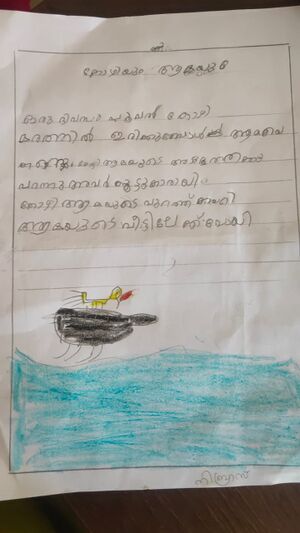 കോഴിയും ആമയും
ഒരു ദിവസം പൂവൻ കോഴി
ഇരിക്കുമ്പോൾ ആമയെ
കണ്ടു ആമയുടെ അടുത്തേക്കു
പറന്നു അവർ കൂട്ടുകാരായി
കോഴി ആമയുടെ പുറത്ത് കയറി
ആമയുടെ വീട്ടിലേക്ക് പോയി
നിബ്രാസ്